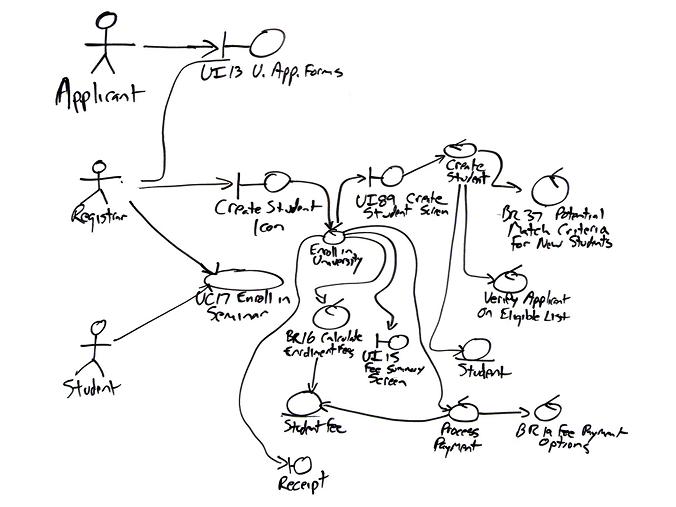 Applicant
UI13 U. App. Forms
Registrar
Create Student
Icon
UI89 Create
Student Screen
Create
Student
BR37 Potential
Match Criteria
for New Students
Enroll in
University
UC17 Enroll in
Seminar
Verify Applicant
On Eligible List
BR16 Calculate
Enrolment Fees
UI15
Fee Summary
Screen
Student
Student
Student Fee
Process
Payment
BR19 Fee Payment
Options
Receipt